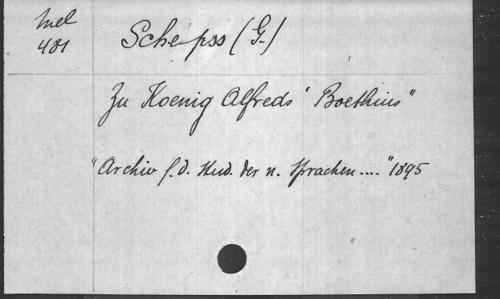 Mel
401
Schepss (G.)
Zu Koenig Alfreds "Boethius"
"Archiv f. d. Stud. der n. Sprachen ...." 1895